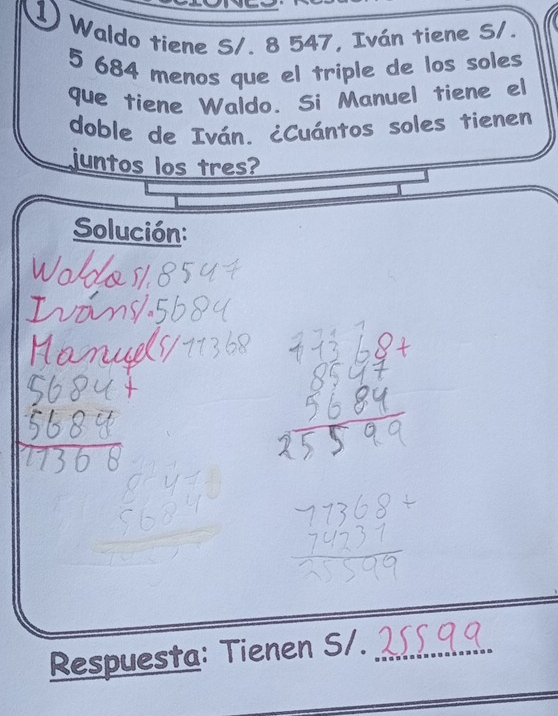 1
Waldo tiene S/. 8 547, Iván tiene S/.
5 684 menos que el triple de los soles
que tiene Waldo. Si Manuel tiene el
doble de Iván. ¿Cuántos soles tienen
juntos los tres?
Solución:
Waldo S/. 8547
Iván S/. 5684
Manuel S/ 11368
5684+
5684
11368
11368+
8547
5684
25599
11368+
14231
25599
Respuesta: Tienen S/. 25599